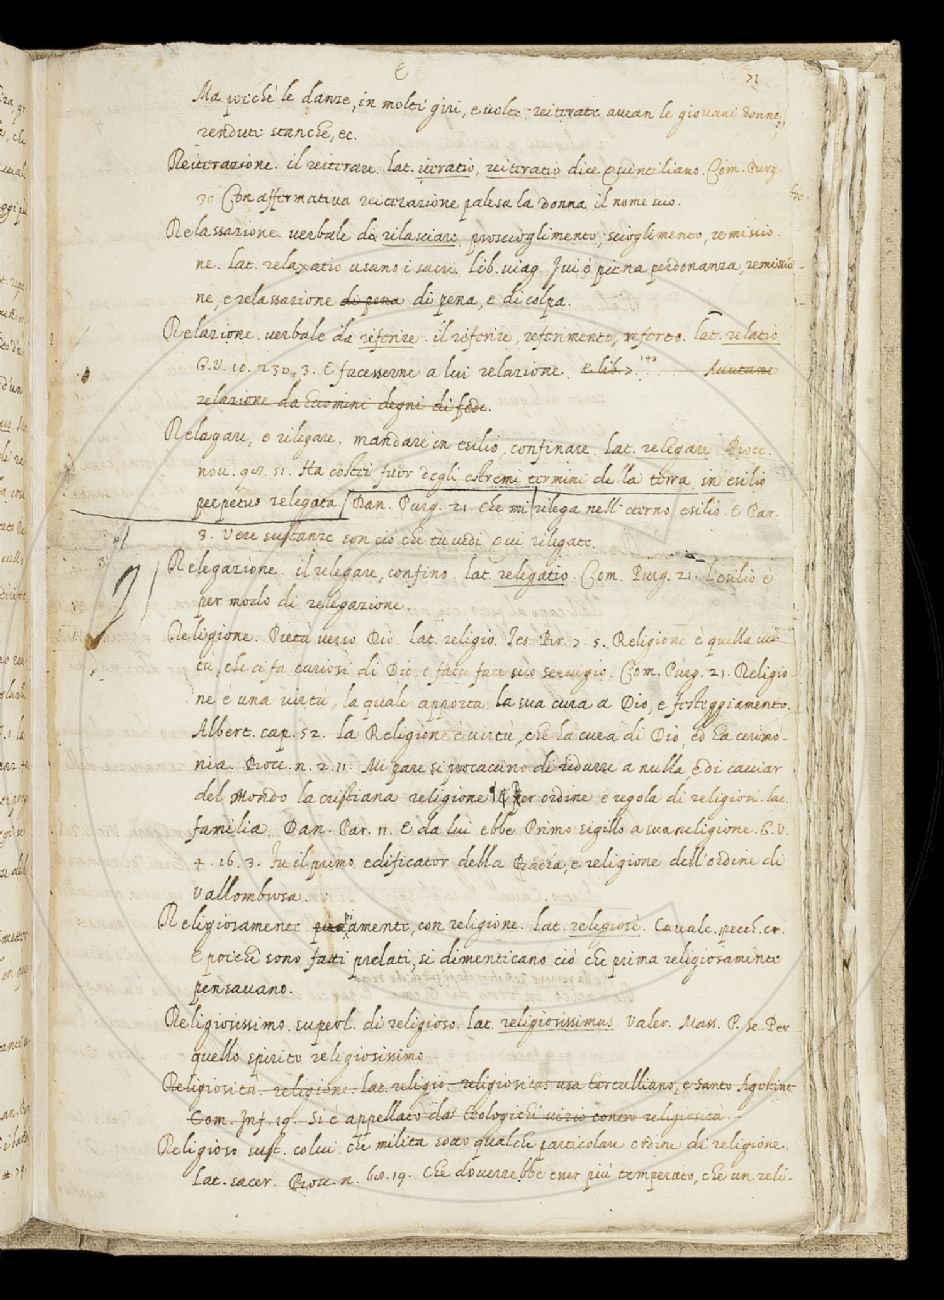 E
71
Ma poichè le danze, in molti giri, e volte reiterate avean le giovani donne
rendute stanche, ec.
Reiterazione. il reiterare. lat. iteratio, reiteratio dice Quintiliano. Com. Purg.
30 Con affermativa reiterazione palesa la Donna il nome suo.
Relassazione. verbale di rilasciare, proscioglimento, scioglimento, remissio-
ne. lat. relaxatio usano i sacri. lib. viag. Ivi è piena perdonanza, remissio-
ne, e relassazione di pena di pena, e di colpa.
Relazione. verbale da riferire. il riferire, referimento, referto. lat. relatio
G.V. 10. 230. 3. E facesserne a lui relazione. e lib. 7. Avutane
relazione da uomini degni di fede.
Relegare, e rilegare. mandare in esilio, confinare. lat. relegare Bocc.
nov. g.8. 51. Ha costei fuor degli estremi termini della terra in esilio
perpetuo relegata Dan. Purg. 21. Che mi rilega nell' eterno esilio. E Par.
3. Vere sustanze son ciò che tu vedi Qui rilegate.
Relegazione. il relegare, confino. lat. relegatio. Com. Purg. 21. L'esilio è
per modo di relegazione.
Religione. Pietà verso Dio. lat. religio. Tes. Br. 7. 5. Religione è quella vir-
tù, che ci fa curiosi di Dio, e facci fare suo servigio. Com. Purg. 21. Religio-
ne è una virtù, la quale apporta la sua cura a Dio, e festeggiamento.
Albert. cap. 52. la Religione è virtù, che la cura di Dio, ed ha cerimo-
nia. Bocc. n. 2. 11. Mi pare si procaccino di ridurre a nulla e di cacciar
del Mondo la cristiana religione Per ordine e regola di religiosi. lat.
familia. Dan. Par. 11. E da lui ebbe Primo sigillo a sua religione. G.V.
4. 16. 3. Fu il primo edificator della Badia, e religione dell'ordine di
Vallombrosa.
Religiosamente amente, con religione. lat. religiosè. Cavalc. pecc. cr.
E poichè sono fatti prelati, si dimenticano ciò che prima religiosamente
pensavano.
Religiosissimo. superl. di religioso. lat. religiosissimus. Valer. Mass. P. Se. Per
quello spirito religiosissimo
Religiosità. religione. lat. religio. religiositas usa Tertulliano, e Santo Agostino
Com. Inf. 19. Si è appellato da Teologichi vizio contro religiosità.
Religioso sust. colui, che milita sotto qualche particolare ordine di religione.
lat. sacer. Bocc. n. 60. 19. Che doverrebbe esser più temperato, che un reli-